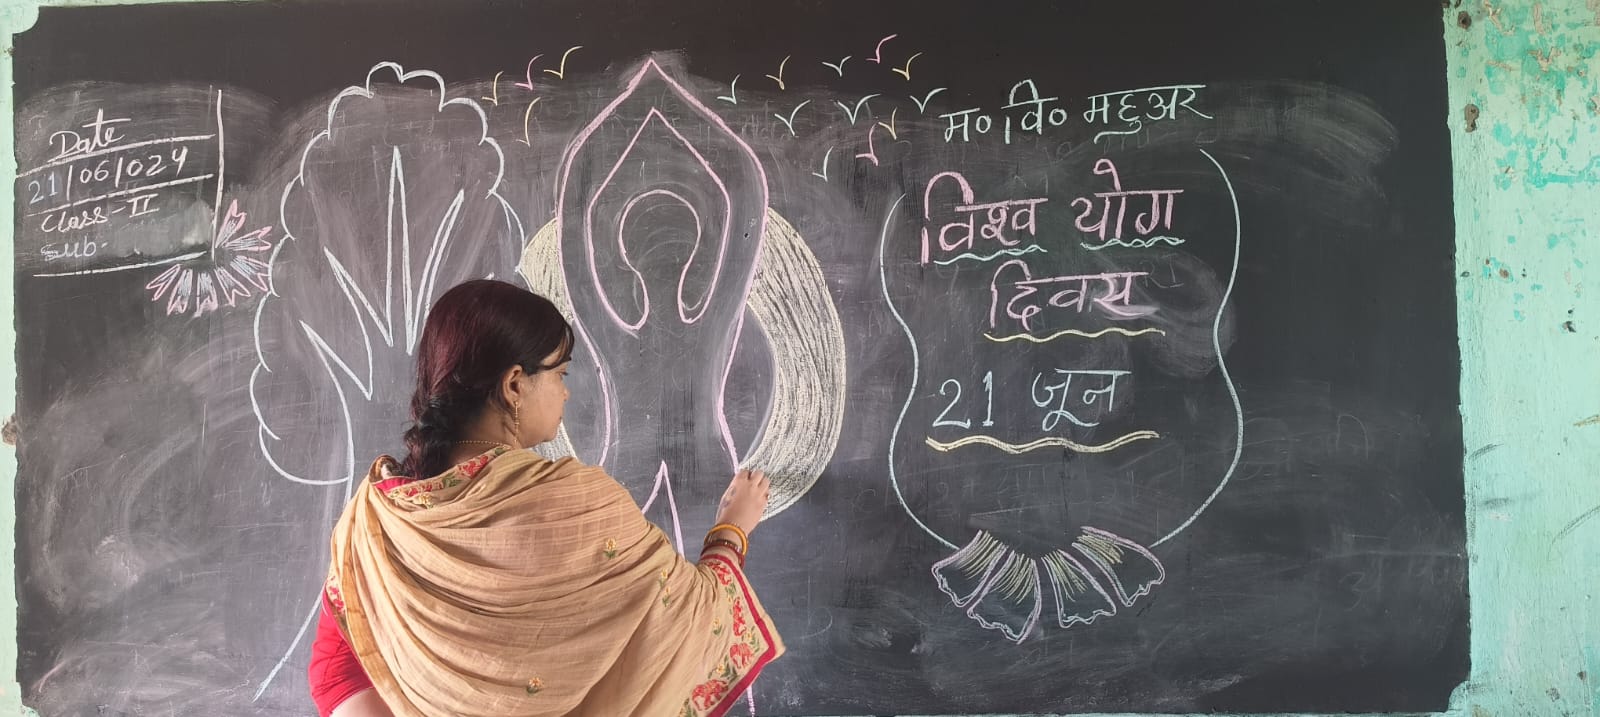 Date
21/06/024
Class-II
Sub-
म० वि० महुअर
विश्व योग
दिवस
21 जून